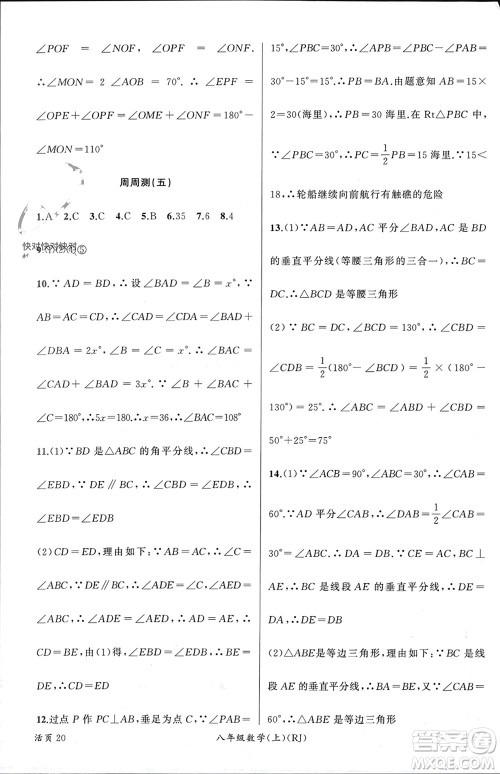 ∠POF = ∠NOF, ∠OPF = ∠ONF.
∴∠MON = 2 ∠AOB = 70°. ∴∠EPF =
∠OPE+∠OPF=∠OME+∠ONF=180°-
∠MON=110°
周周测(五)
1.A 2.C 3.C 4.C 5.B 6.35 7.6 8.4
快对快对快对
10. ∵AD=BD,∴设∠BAD=∠B=x°,∵
AB=AC=CD,∴∠CAD=∠CDA=∠B+
∠DBA=2x°.∵∠BAC=∠BAD+
∠CAD=3x°,∴∠B+∠BAC+
∠C=180°,∴5x=180.∴x=36,∴∠BAC=108°
11.(1)∵BD是△ABC的角平分线,∴∠CBD=
∠EBD,∵DE∥BC,∴∠CBD=∠EDB,
∴∠EBD=∠EDB
(2)CD=ED,理由如下:∵AB=AC,∴∠C=
∠ABC,∵DE∥BC,∴∠ADE=∠C,∠AED=
∠ABC,∴∠ADE=∠AED,∴AD=AE,∴CD=
BE,由(1)得,∠EBD=∠EDB,∴BE=DE,
∴CD=ED
12.过点P作PC⊥AB,垂足为点C,∵∠A=
15°,∠PBC=30°,∴∠APB=∠PBC-∠A=
30°-15°=15°=∠A,∴PB=AB.由题意知AB=15×
2=30(海里),∴PB=30海里,在Rt△PBC中,
∠PBC=30°,∴PC=1/2PB=15海里.∵15<
18,∴轮船继续向前航行有触礁的危险
13.(1)∵AB=AC,AD平分∠BAC,∴AD是BC
的垂直平分线(等腰三角形的三合一),∴BD=
CD,∴△BDC是等腰三角形
(2)∵△BDC是等腰三角形,∠BDC=130°,∴
∠CDB=1/2(180°-∠BCD)=1/2(180°-
130°)=25°.∴∠BCE=∠BCD+∠DCE=
50°+25°=75°
14.(1)∵∠ACB=90°,∠ABC=30°,∴∠CAB=
60°,∵AD平分∠CAB,∴∠DAB=1/2∠CAB=
30°=∠ABC,∴DA=DB,∵CE=AC,∴BC
是线段AE的垂直平分线,∴DE=DA,∴DE=DB
(2)△ABE是等边三角形;理由如下:∵BC是线段
AE的垂直平分线,∴BA=BE,∵∠CAB=
60°,∴△ABE是等边三角形
活页 20
八年级数学(上)(RJ)